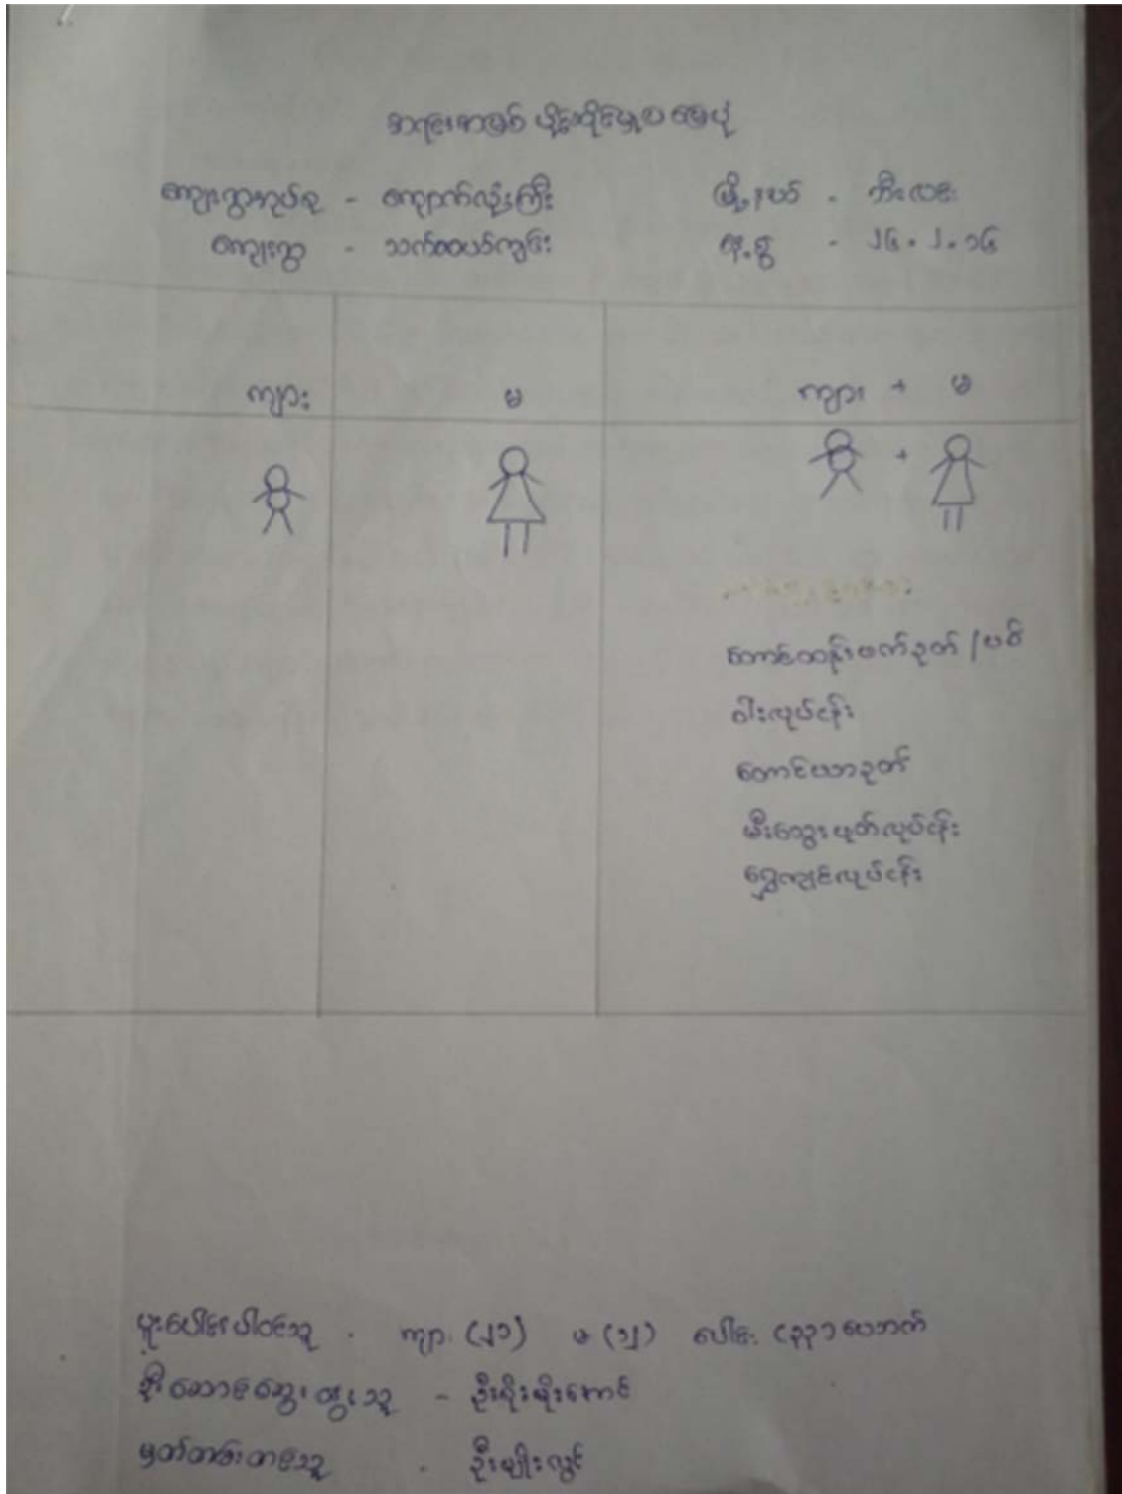 အရင်းအမြစ် ပိုင်ဆိုင်မှုပြ မြေပုံ
ကျေးရွာအုပ်စု - ကျောက်လုံးကြီး မြို့နယ် - ဘီးလင်း
ကျေးရွာ - သက်ငယ်ကျင်း နေ့စွဲ - ၂၆.၂.၁၆
ကျား မ ကျား + မ
+
တောင်ထန်းဖက်ခုတ် / ပစ်
ဝါးလုပ်ငန်း
တောင်ယာခုတ်
မီးသွေးဖုတ်လုပ်ငန်း
ရွှေကျင်လုပ်ငန်း
ပူးပေါင်းပါဝင်သူ - ကျား (၂၁) မ (၁၂) ပေါင်း (၃၃) ယောက်
ဦးဆောင်ဆွေးနွေးသူ - ဦးစိုးမိုးအောင်
မှတ်တမ်းတင်သူ - ဦးမျိုးလွင်